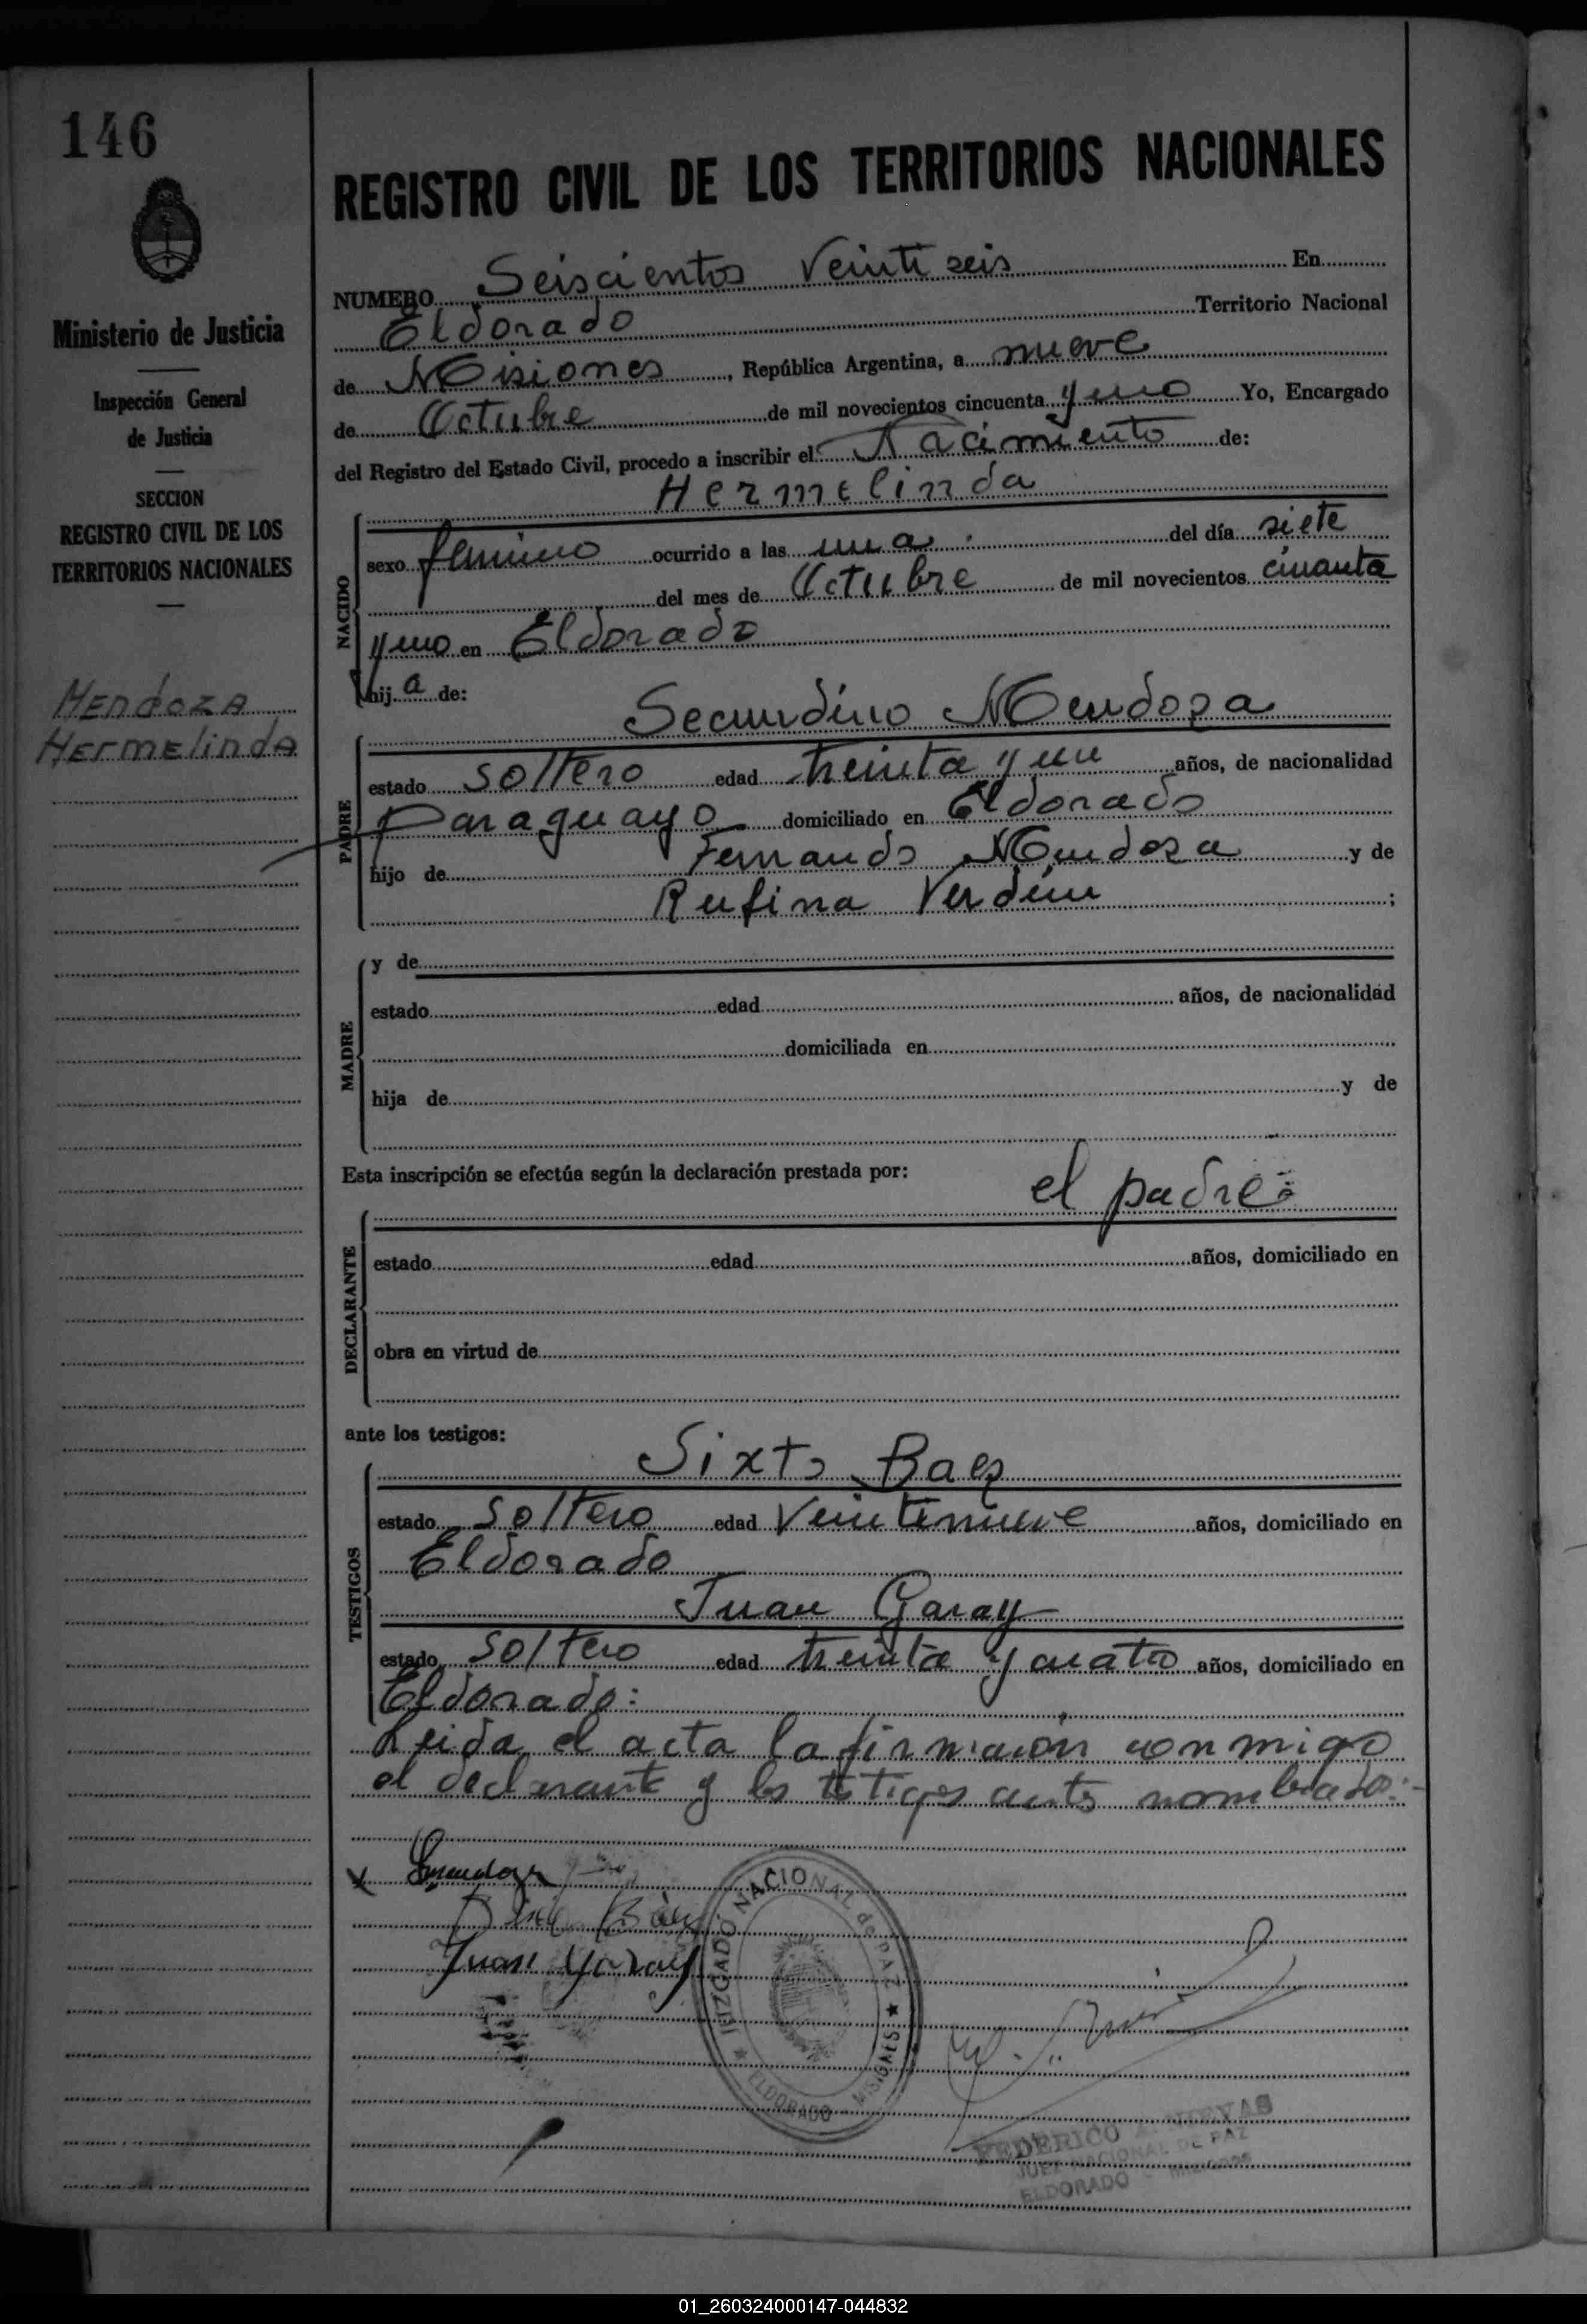 146
REGISTRO CIVIL DE LOS TERRITORIOS NACIONALES
Ministerio de Justicia
Inspección General
de Justicia
SECCION
REGISTRO CIVIL DE LOS
TERRITORIOS NACIONALES
Mendoza
Hermelinda
NUMERO Seiscientos Veinti seis En
Eldorado Territorio Nacional
de Misiones, República Argentina, a nueve
de Octubre de mil novecientos cincuenta y uno Yo, Encargado
del Registro del Estado Civil, procedo a inscribir el Nacimiento de:
Hermelinda
NACIDO
sexo femenino ocurrido a las una del día siete
del mes de Octubre de mil novecientos cincuanta
y uno en Eldorado
hij a de:
Secundino Mendoza
PADRE
estado soltero edad treinta y un años, de nacionalidad
Paraguayo domiciliado en Eldorado
hijo de Fernando Mendoza y de
Rufina Verdún ;
MADRE
y de
estado edad años, de nacionalidad
domiciliada en
hija de y de
Esta inscripción se efectúa según la declaración prestada por:
el padre:
DECLARANTE
estado edad años, domiciliado en
obra en virtud de
ante los testigos:
Sixto Baez
TESTIGOS
estado Soltero edad Veintinueve años, domiciliado en
Eldorado
Juan Garay
estado Soltero edad treinta y cuatro años, domiciliado en
Eldorado:
Leida el acta la firmaron conmigo
el declarante y los testigos antes nombrado:-
SMendoza
Baez
Juan Garay
JUZGADO NACIONAL de PAZ
★ ELDORADO - MISIONES ★
FEDERICO A. NIEVAS
JUEZ NACIONAL DE PAZ
ELDORADO - MISIONES
01_260324000147-044832